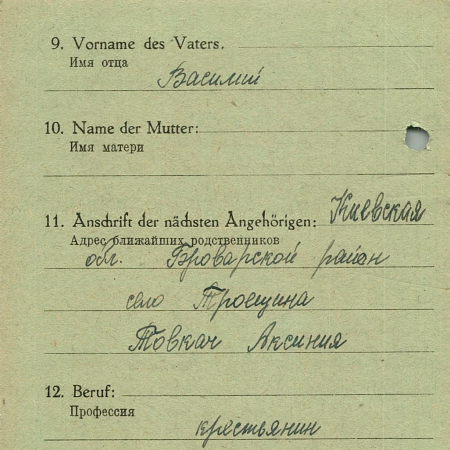 9. Vorname des Vaters.
Имя отца
Василий
10. Name der Mutter:
Имя матери
11. Anschrift der nächsten Angehörigen: Киевская
Адрес ближайших родственников
обл. Броварской район
село Троещина
Товкач Аксиния
12. Beruf:
Профессия
крестьянин